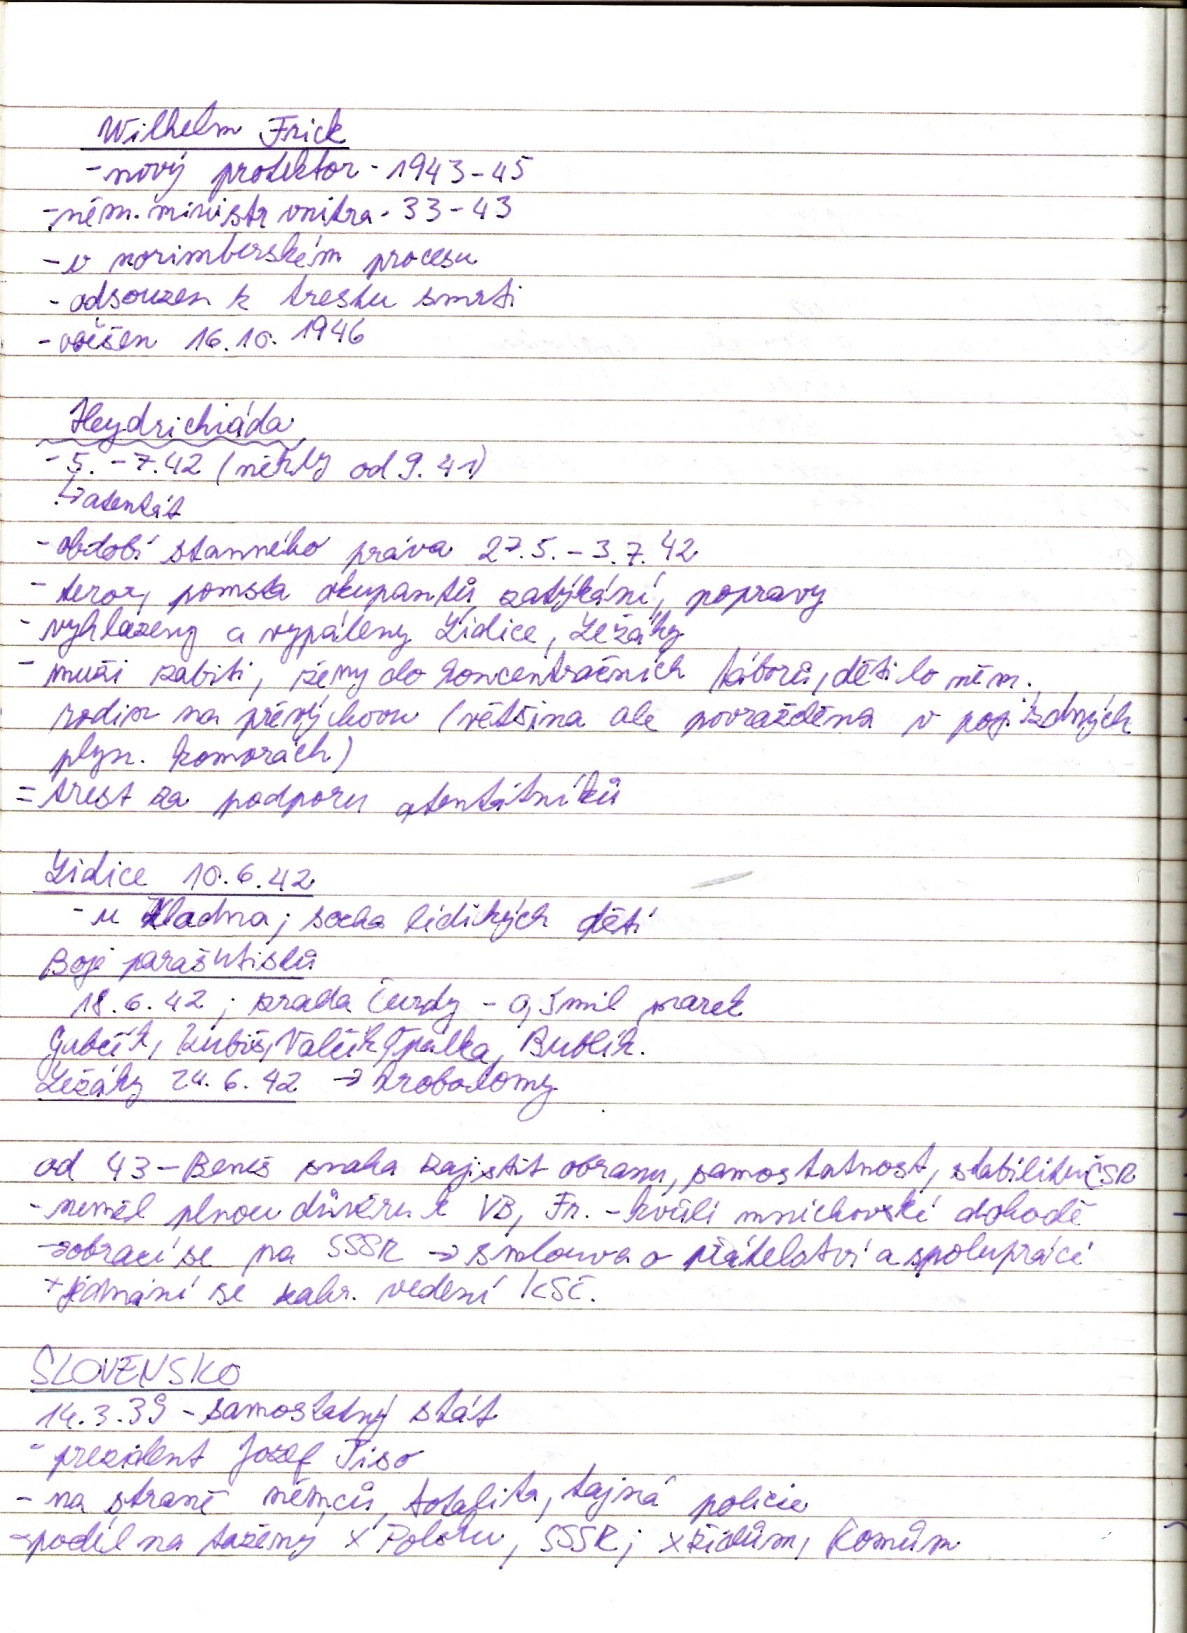 Wilhelm Frick
- nový protektor - 1943-45
- něm. ministr vnitra - 33-43
- v norimberském procesu
- odsouzen k trestu smrti
- oběšen 16.10. 1946
Heydrichiáda
- 5. - 7.42 (někdy od 9. 41)
↳ atentát
- období stanného práva 27.5. - 3.7.42
- teror, pomsta okupantů, zatýkání, popravy
- vyhlazeny a vypáleny Lidice, Ležáky
- muži zabiti, ženy do koncentračních táborů, děti do něm.
rodin na převýchovu (většina ale povražděna v pojízdných
plyn. komorách)
= trest za podporu atentátníků
Lidice 10.6.42
- u Kladna; socha lidických dětí
Boje parašutistů
18.6.42; zrada Čurdy - a, smil marek
Gubčík, Kubiš, Valčík, Opálka, Bublík.
Ležáky 24.6.42 → trobotomy
od 43 - Beneš snaha zajistit obranu, samostatnost, stabilitu ČSR
- neměl plnou důvěru k VB, Fr. - kvůli mnichovské dohodě
→ obrací se na SSSR → smlouva o přátelství a spolupráci
+ jednání se zahr. vedení KSČ.
SLOVENSKO
14.3.39 - samostatný stát
- prezident Jozef Tiso
- na straně němců, totalita, tajná policie
- podíl na tažený x Polsku, SSSR; x židům, Romům